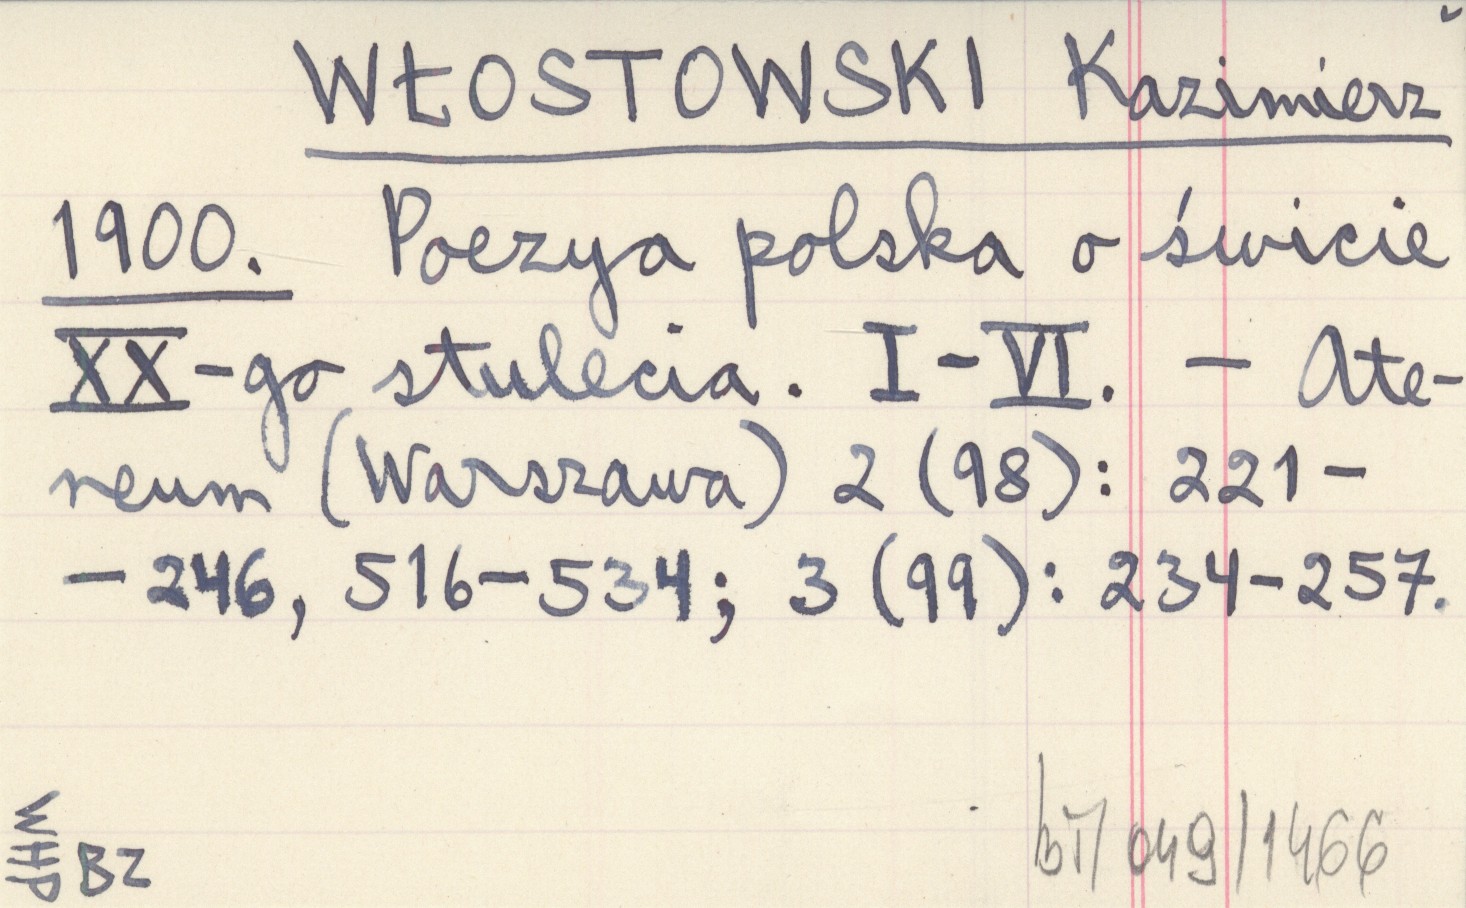 WŁOSTOWSKI Kazimierz
1900. Poezya polska o świcie
XX-go stulecia. I-VI. — Ate-
neum (Warszawa) 2 (98): 221-
-246, 516-534; 3 (99): 234-257.
BZ
/049/1466